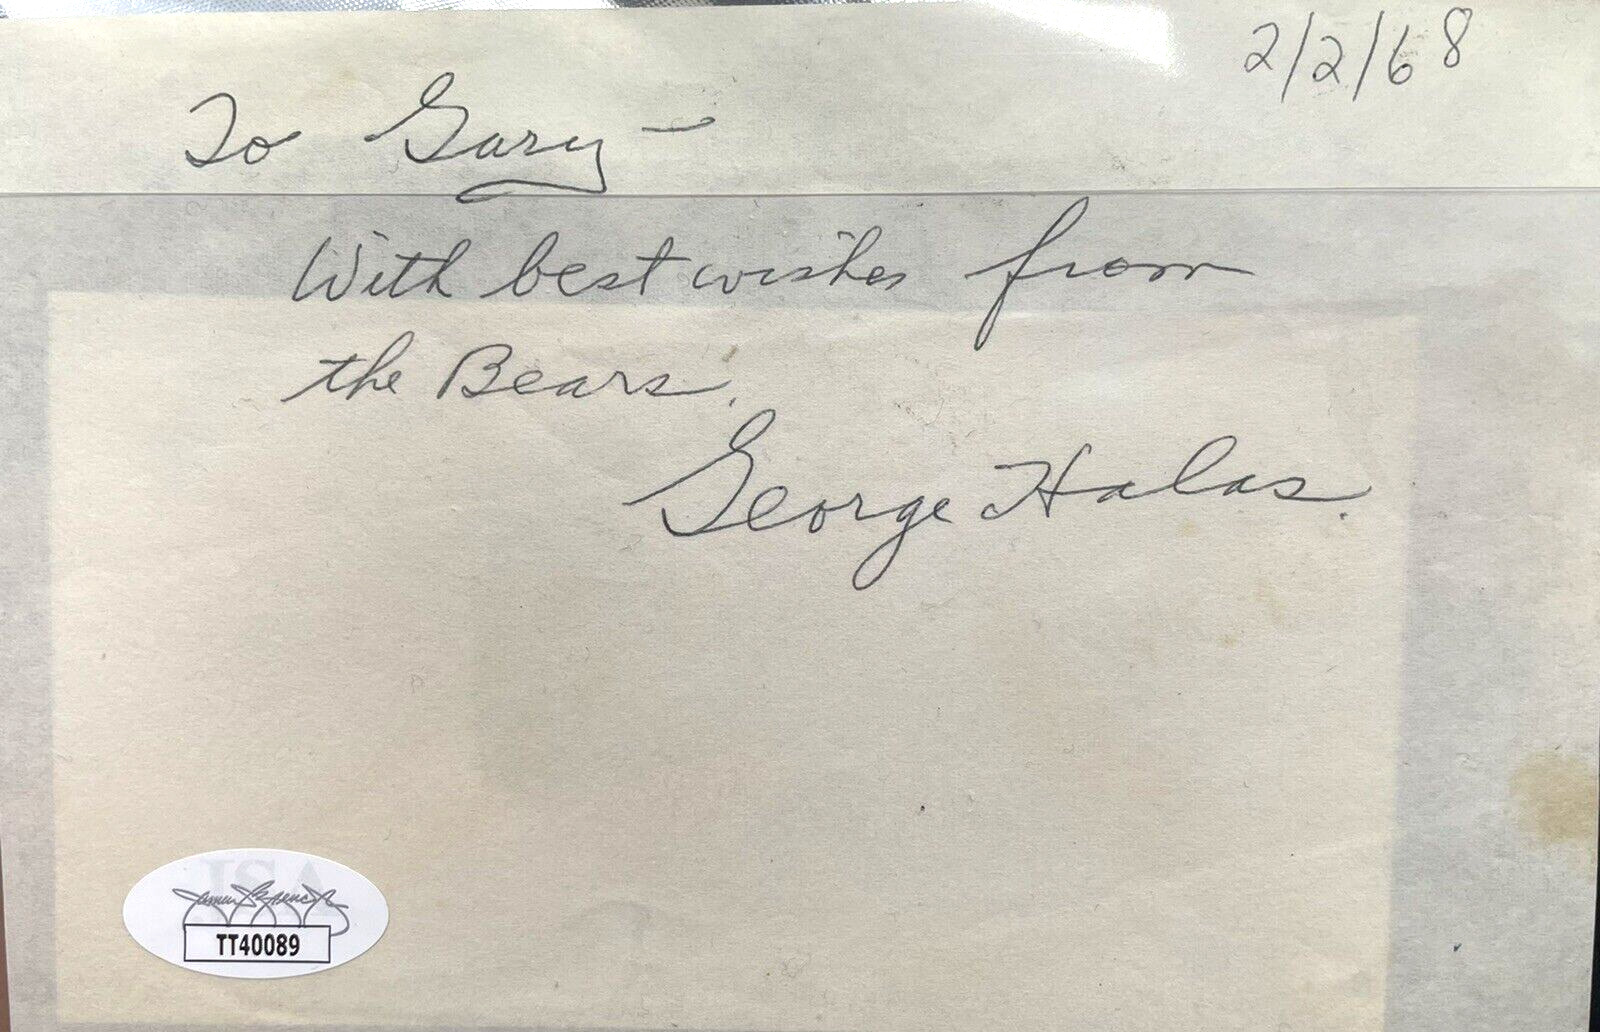 2/2/68
To Gary —
With best wishes from
the Bears.
George Halas.
JSA
TT40089